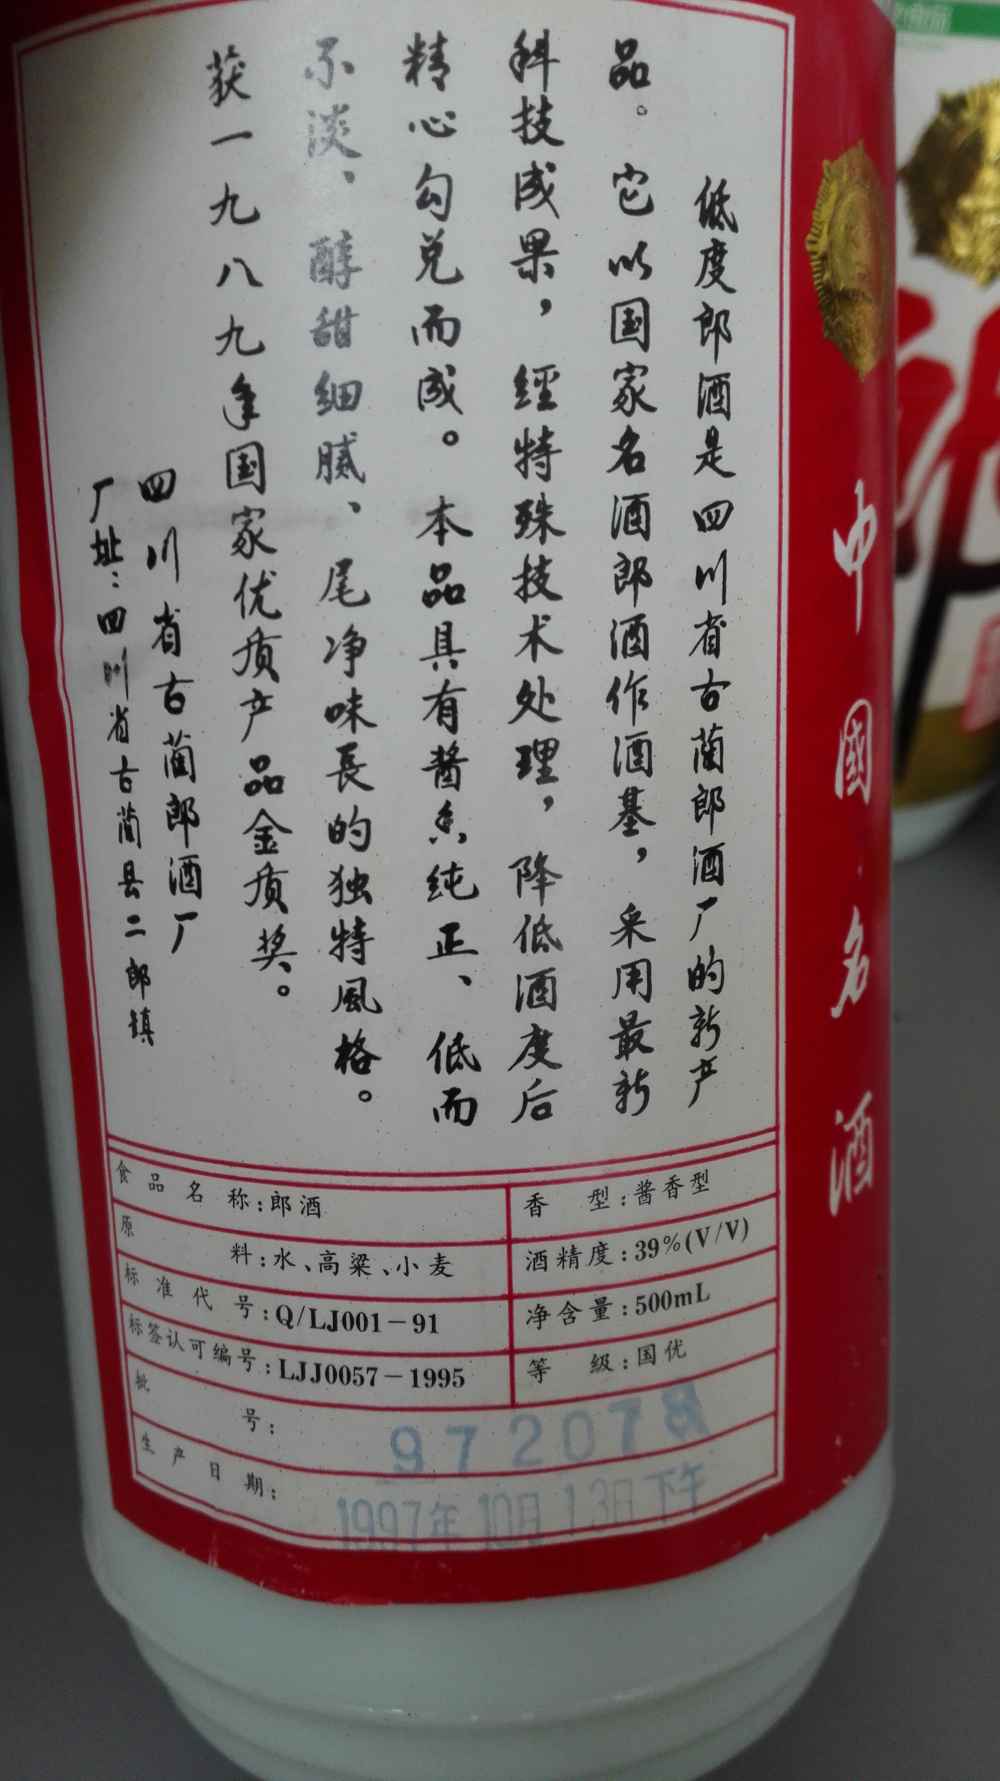 低度郎酒是四川省古蔺郎酒厂的新产
品。它以国家名酒郎酒作酒基，采用最新
科技成果，经特殊技术处理，降低酒度后
精心勾兑而成。本品具有酱香纯正、低而
不淡、醇甜细腻、尾净味長的独特風格。
获一九八九年国家优质产品金质奖。
四川省古蔺郎酒厂
厂址：四川省古蔺县二郎镇
食品名称：郎酒
香型：酱香型
原料：水、高粱、小麦
酒精度：39%(V/V)
标准代号：Q/LJ001-91
净含量：500mL
标签认可编号：LJJ0057-1995
等级：国优
批号：
生产日期：
1997年10月13日下午
中國名酒